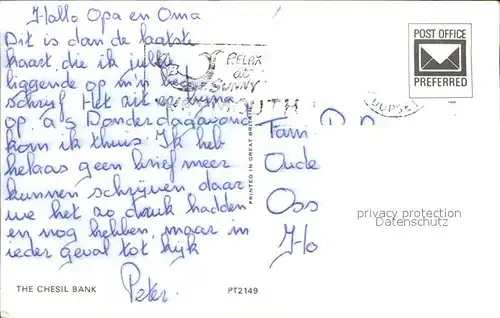 Hallo Opa en Oma
Dit is dan de laatste
kaart die ik jullie
liggende op m'n
schrijf Het zit er bijna
op a.s Donderdagavond
kom ik thuis. Ik heb
helaas geen brief meer
kunnen schrijven daar
we het zo druk hadden
en nog hebben, maar in
ieder geval tot kijk
Peter.
RELAX
at
SUNNY
POST OFFICE
PREFERRED
Fam
Oude
Oss
Ho
PRINTED IN GREAT BR
privacy protection
Datenschutz
THE CHESIL BANK
PT2149